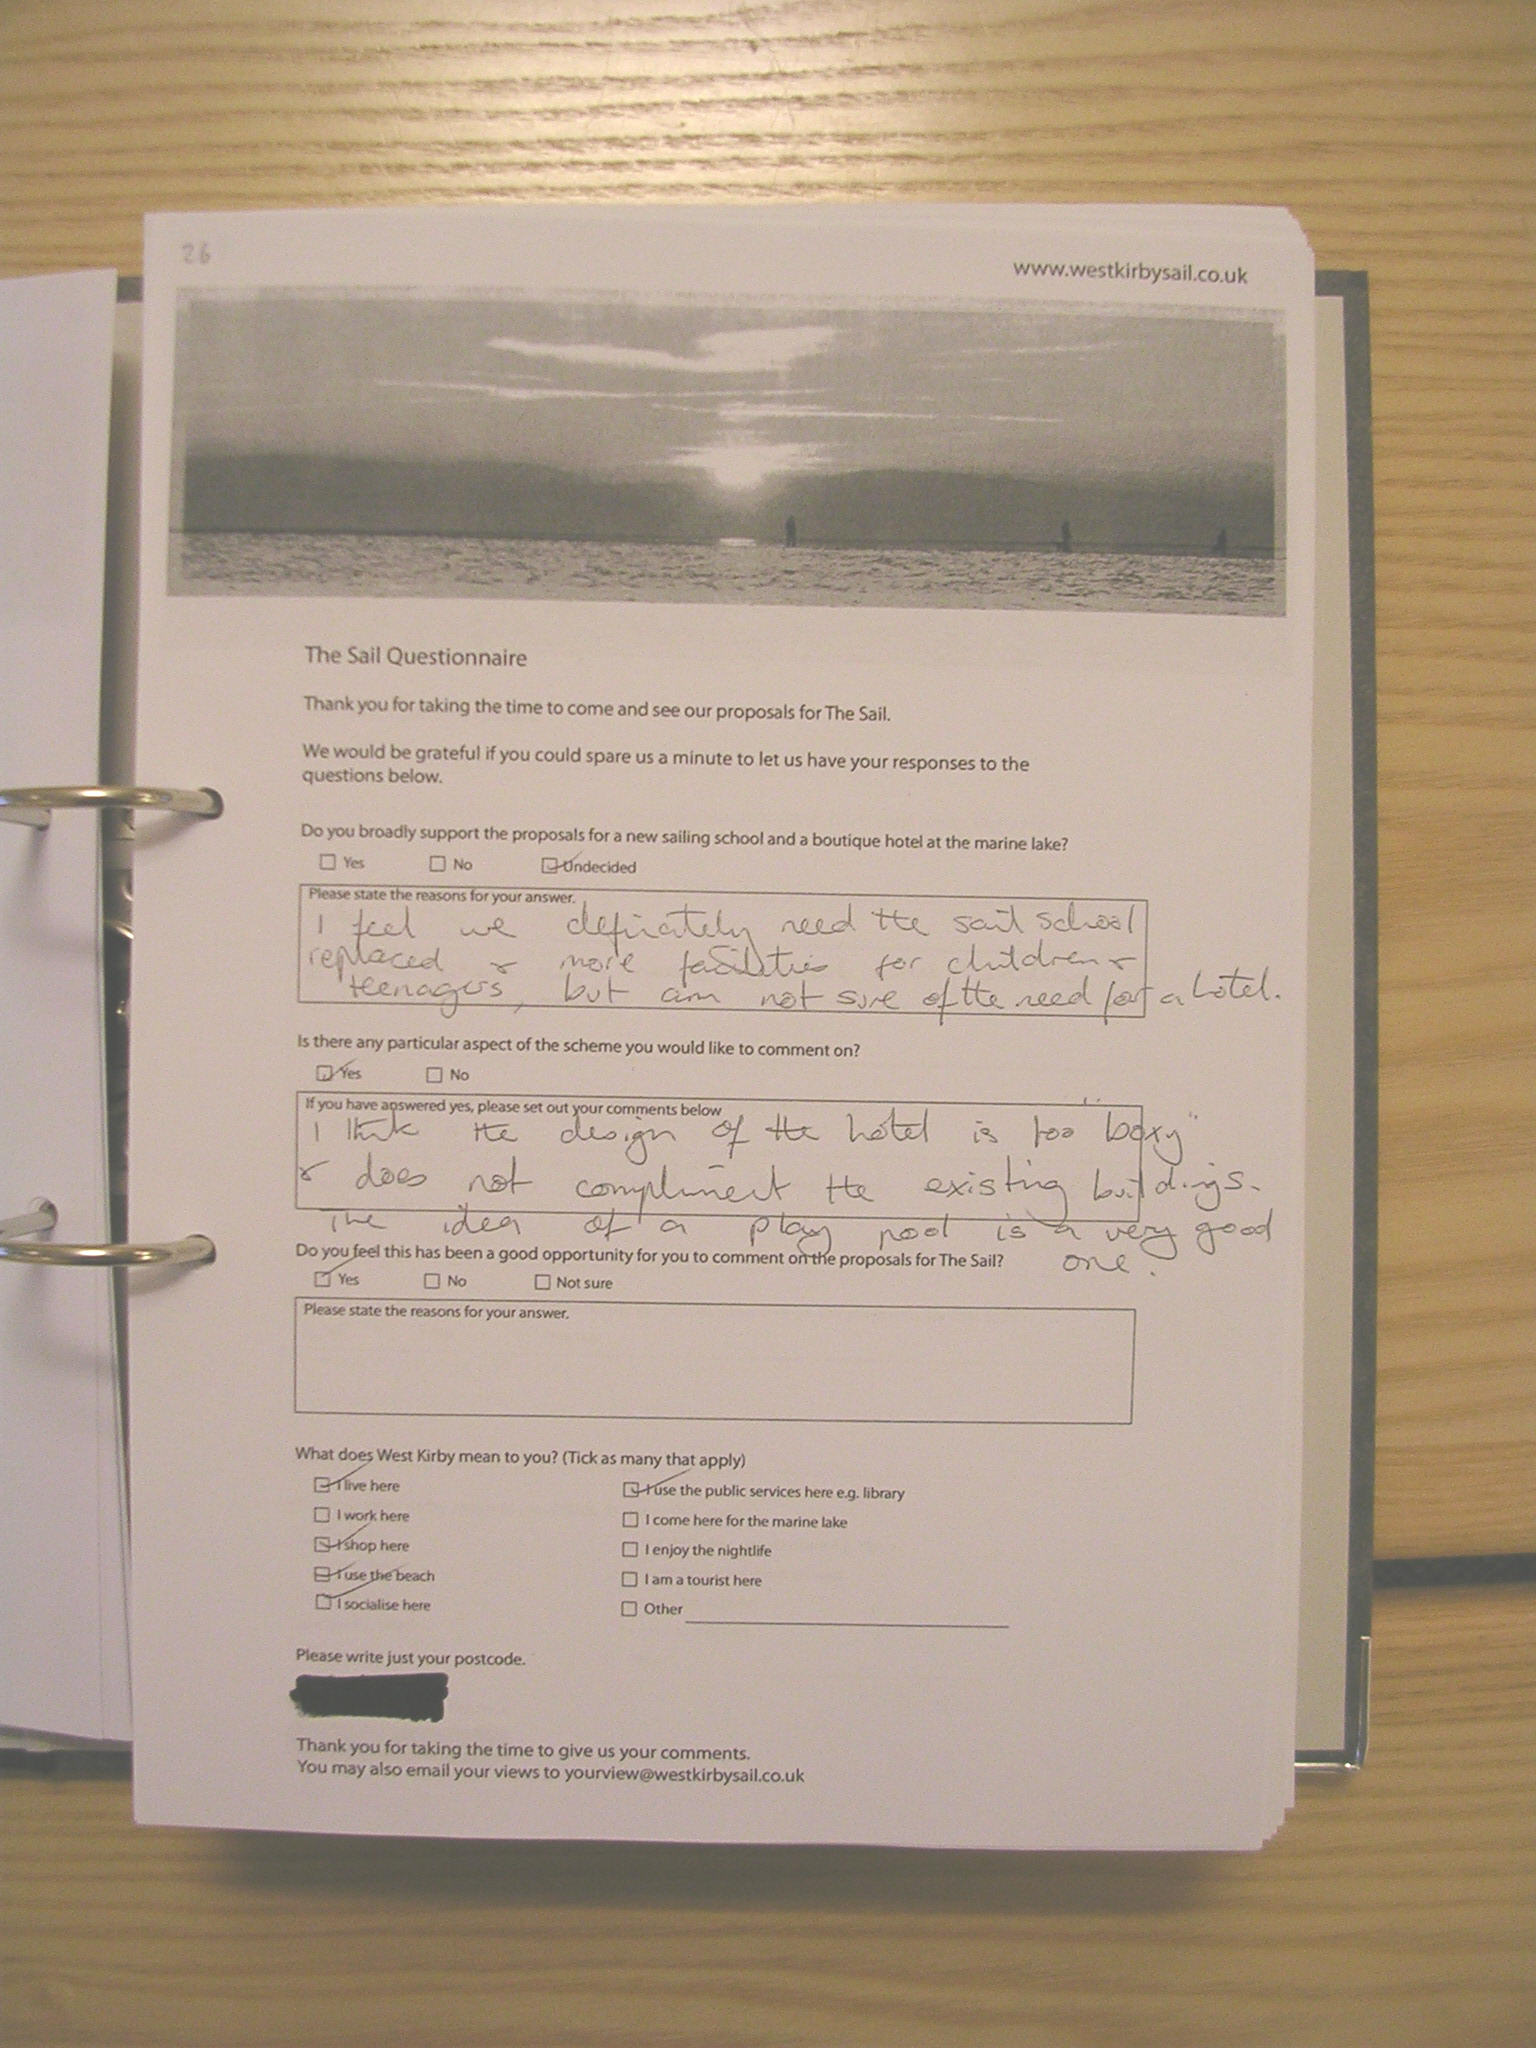 26
www.westkirbysail.co.uk
The Sail Questionnaire
Thank you for taking the time to come and see our proposals for The Sail.
We would be grateful if you could spare us a minute to let us have your responses to the
questions below.
Do you broadly support the proposals for a new sailing school and a boutique hotel at the marine lake?
Yes No Undecided
Please state the reasons for your answer.
I feel we definately need the sail school
replaced & more facilities for children &
teenagers, but am not sure of the need for a hotel.
Is there any particular aspect of the scheme you would like to comment on?
Yes No
If you have answered yes, please set out your comments below
I think the design of the hotel is too "boxy"
& does not compliment the existing buildings.
The idea of a play pool is a very good
one.
Do you feel this has been a good opportunity for you to comment on the proposals for The Sail?
Yes No Not sure
Please state the reasons for your answer.
What does West Kirby mean to you? (Tick as many that apply)
I live here I use the public services here e.g. library
I work here I come here for the marine lake
I shop here I enjoy the nightlife
I use the beach I am a tourist here
I socialise here Other
Please write just your postcode.
Thank you for taking the time to give us your comments.
You may also email your views to yourview@westkirbysail.co.uk